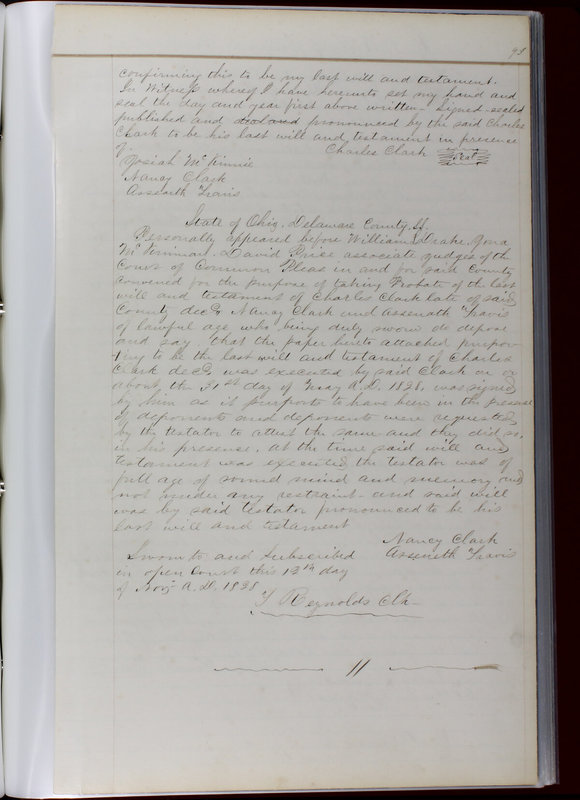 93
confirming this to be my last will and testament.
In Witness whereof I have hereunto set my hand and
seal the day and year first above written - signed - sealed
published and declared pronounced by the said Charles
Clark to be his last will and testament in presence
of Charles Clark Seal
Josiah McKinnie
Nancy Clark
Asseneth Travis
State of Ohio. Delaware County, SS.
Personally appeared before William Drake,
McKinnie. David Prise associate judges of the
Court of Common Pleas in and for said County
convened for the purpose of taking Probate of the last
will and testament of Charles Clark late of said
County decd, Nancy Clark and Assenath Travis
of lawful age who being duly sworn do depose
and say that the paper hereto attached purpor-
ting to be the last will and testament of Charles
Clark decd was executed by said Clark on or
about the 31st day of May A.D. 1828. was signed
by him as it purports to have been in the presence
of deponents and deponents were requested
by the testator to attest the same and they did so,
in his presence. at the time said will and
testament was executed the testator was of
full age of sound mind and memory and
not under any restraint - and said will
was by said testator pronounced to be his
last will and testament
Nancy Clark
Asseneth Travis
Sworn to and subscribed
in open Court this 12th day
of Nov A.D. 1828
T Reynolds Clk
11